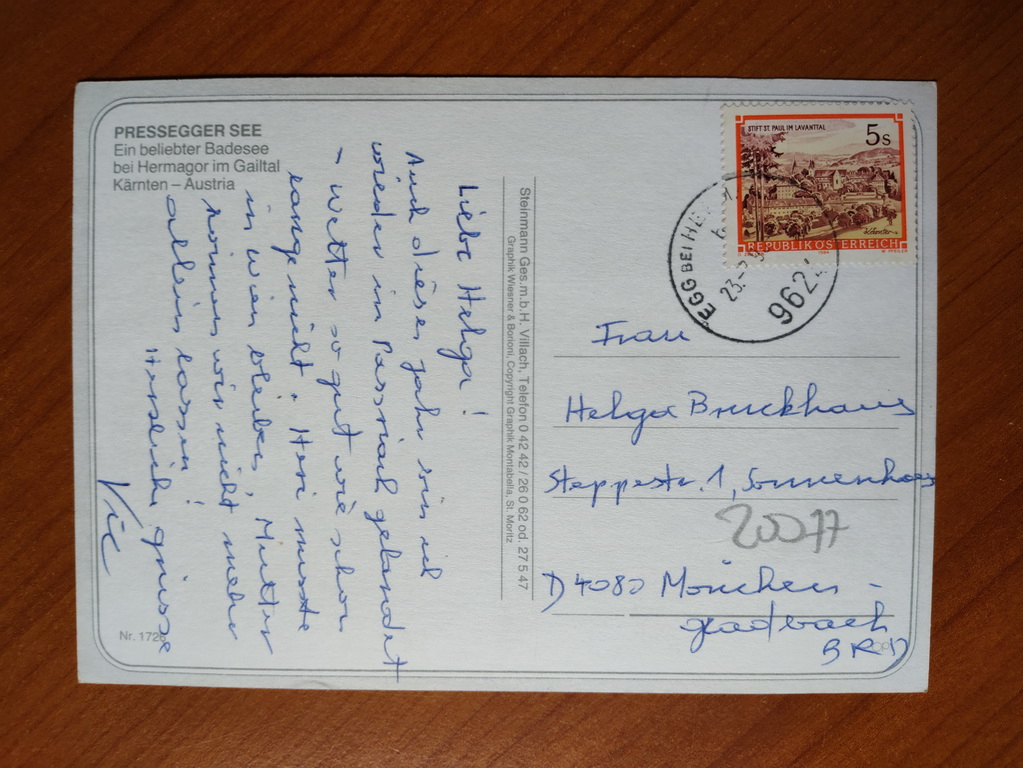 PRESSEGGER SEE
Ein beliebter Badesee
bei Hermagor im Gailtal
Kärnten – Austria
Liebe Helga!
Auch dieses Jahr bin ich
wieder in Passriach gelandet
– Wetter so gut wie schon
lange nicht. Heri musste
in Wien bleiben, Mutter
können wir nicht mehr
allein lassen!
Herzliche Grüsse
Nr. 1726
Steinmann Ges.m.b.H. Villach, Telefon 0 42 42 / 26 0 62 od. 27 5 47
Graphik Wiesner & Borioni, Copyright Graphik Montabella, St. Moritz
STIFT ST. PAUL IM LAVANTTAL
5s
Kärnten
REPUBLIK ÖSTERREICH
EGG BEI HE
23.-7
962
Frau
Helga Bruckhaus
Steppestr. 1, Sonnenhaus
20077
D 4080 Mönchen-
gladbach
BRD